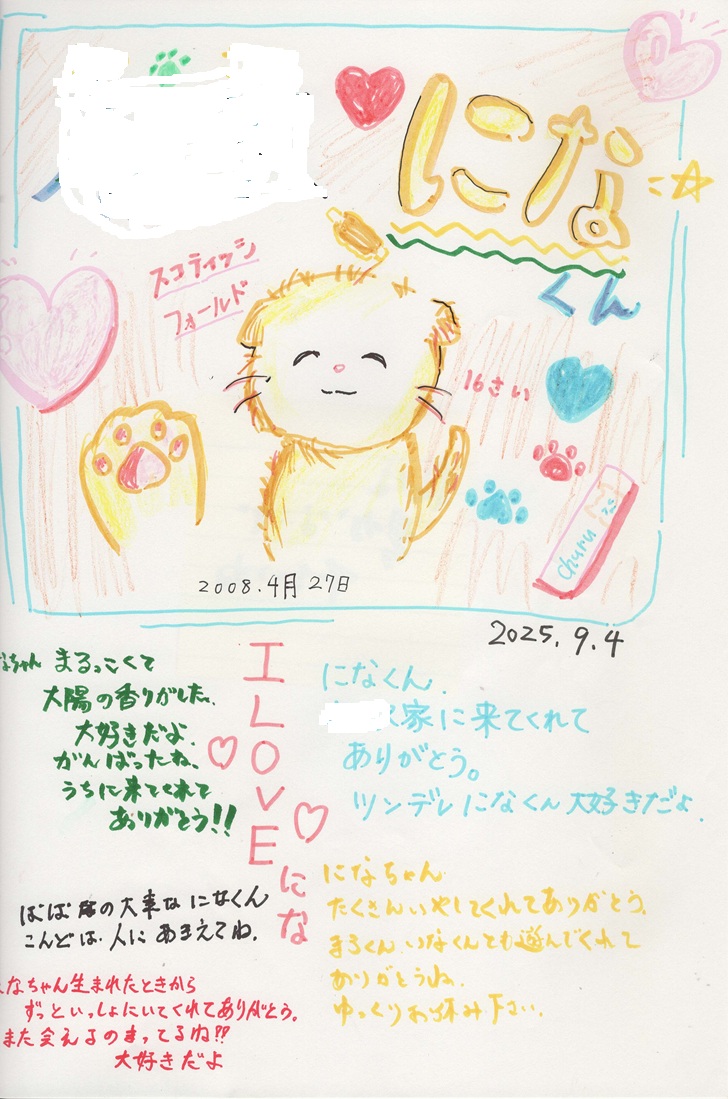 にな
くん
スコティッシ
フォールド
16さい
churu
2008.4月27日
2025.9.4
I LOVE にな
なちゃん まるっこくて
太陽の香りがした。
大好きだよ。
がんばったね。
うちに来てくれて
ありがとう!!
になくん。
家に来てくれて
ありがとう。
ツンデレになくん大好きだよ。
ばば の大事な になくん
こんどは 人に あまえてね。
になちゃん
たくさんいやしてくれてありがとう。
まろくん、いなくんとも遊んでくれて
ありがとうね。
ゆっくりお休み下さい。
なちゃん生まれたときから
ずっといっしょにいてくれてありがとう。
また会えるのまってるね!!
大好きだよ